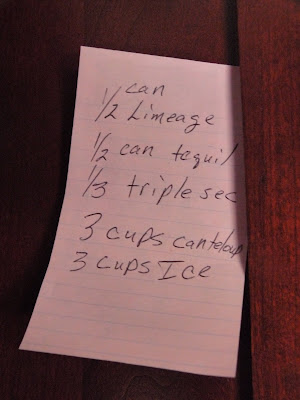 can
1/2 Limeage
1/2 can tequil
1/3 triple sec
3 cups canteloup
3 cups Ice